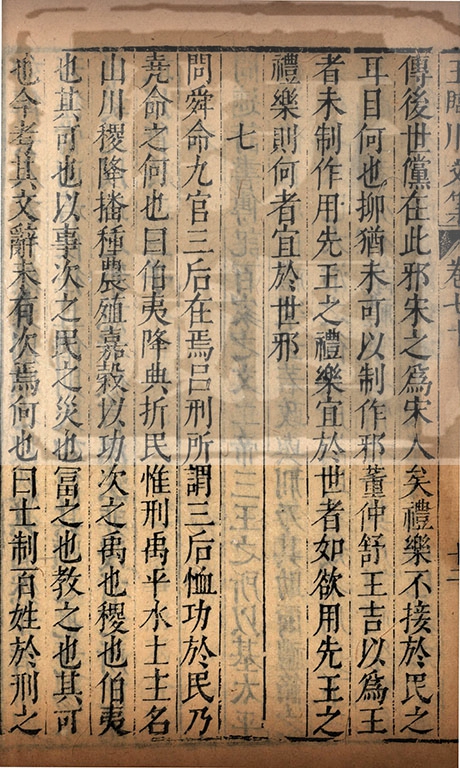 王臨川文集 卷七十 十二
傳後世儻在此邪宋之爲宋久矣禮樂不接於民之
耳目何也抑猶未可以制作邪董仲舒王吉以爲王
者未制作用先王之禮樂宜於世者如欲用先王之
禮樂則何者宜於世邪
七
問舜命九官三后在焉吕刑所謂三后恤功於民乃
堯命之何也曰伯夷降典折民惟刑禹平水土主名
山川稷降播種農殖嘉穀以功次之禹也稷也伯夷
也其可也以事次之民之災也冨之也教之也其可
也今考其文辭未有次焉何也曰士制百姓於刑之